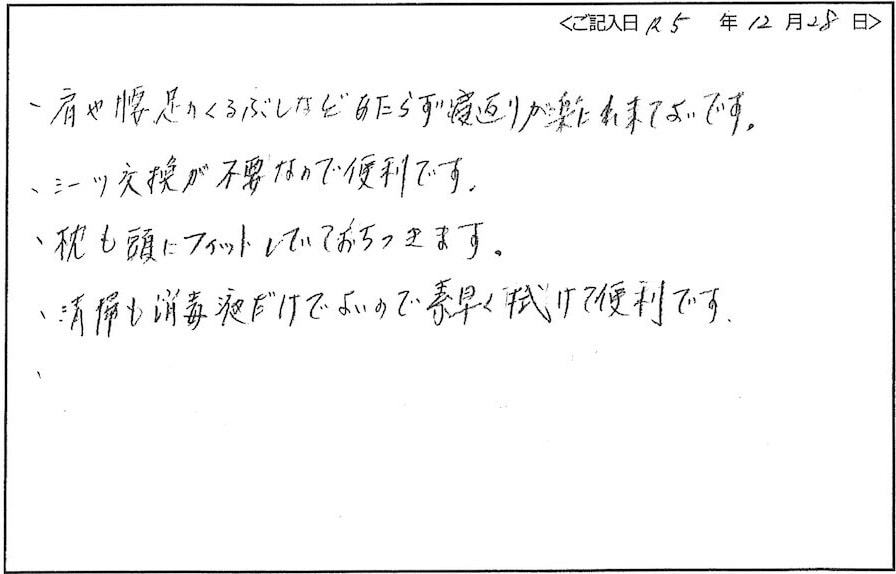 <ご記入日 R5 年 12 月 28 日>
、肩や腰足のくるぶしなどあたらず寝返りが楽に出来てよいです。
、シーツ交換が不要なので便利です。
、枕も頭にフィットしていておちつきます。
、清掃も消毒液だけでよいので素早く拭けて便利です.
、